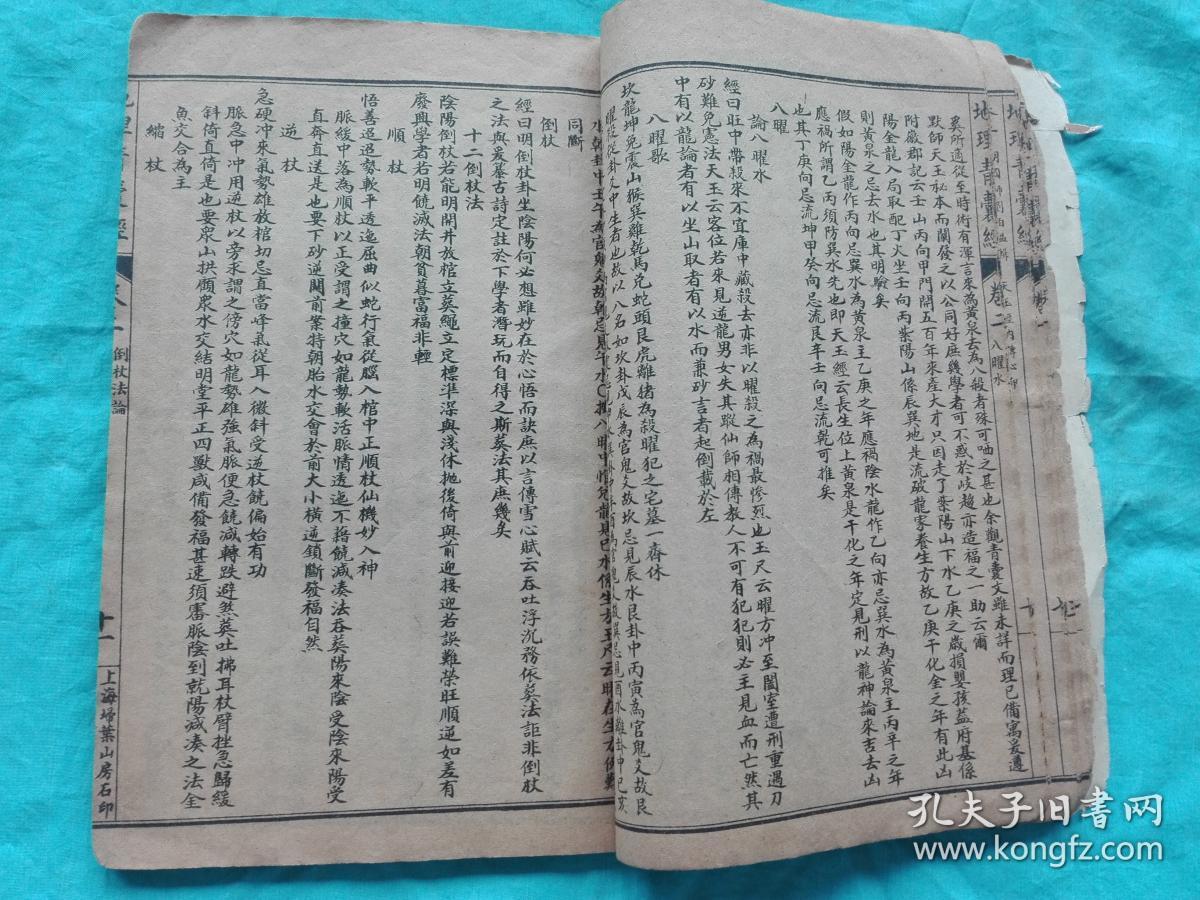 地理青囊經
卷二
八曜水
異所適從至時術有渾言來為黃泉去為八殺者殊可哂之甚也余觀青囊文雖未詳而理已備寓爰遵
默師天玉秘本而闡發之以公同好庶幾學者可不惑於岐趨亦造福之一助云爾
附廠郡記云壬山丙向甲門開五百年來產大才只因走了紫陽山下水乙庚之歲損嬰孩益府基係
陽金龍入局取配丁火坐壬向丙紫陽山係辰巽地是流破龍家養生方故乙庚干化金之年有此凶
則黃泉之忌去水也其明驗矣
假如陽金龍作丙向忌巽水為黃泉主乙庚之年應禍陰水龍作乙向亦忌巽水為黃泉主丙辛之年
應禍所謂乙丙須防巽水先也即天玉經云長生位上黃泉是干化之年定見刑以龍神論來吉去凶
也其丁庚向忌流坤甲癸向忌流艮辛壬向忌流乾可推矣
八曜
論八曜水
經曰旺中帶殺來不宜庫中藏殺去亦非以曜殺之為禍最慘烈也玉尺云曜方冲至闔室遭刑重遇刀
砂難免憲法天玉云客位若來見逆龍男女失其蹤仙師相傳教人不可有犯犯則必主見血而亡然其
中有以龍論者有以坐山取者有以水而兼砂言者起倒載於左
八曜歌
坎龍坤兔震山猴巽雞乾馬兌蛇頭艮虎離猪為殺曜犯之宅墓一齊休
曜殺從卦爻中生者也故以八名如坎卦戊辰為官鬼爻故坎忌見辰水艮卦中丙寅為官鬼爻故艮
同斷
倒杖
經曰明倒杖卦坐陰陽何必想雖妙在於心悟而訣庶以言傳雪心賦云吞吐浮沉務依葬法詎非倒杖
之法與爰纂古詩定註於下學者潛玩而自得之斯葬法其庶幾矣
十二倒杖法
陰陽倒杖若能明開井放棺立葬繩立定標準深與淺休拋後倚與前迎接迎若誤難榮旺順逆如差有
廢興學者若明饒減法朝貧暮富福非輕
順杖
悟善逶迤勢軟平透迤屈曲似蛇行氣從腦入棺中正順杖仙機妙入神
脈緩中落為順杖以正受謂之撞穴如龍勢軟活脈情透迤不藉饒減湊法吞葬陽來陰受陰來陽受
直奔直送是也要下砂逆關前案特朝胎水交會於前大小橫逆鎖斷發福自然
逆杖
急硬冲來氣勢雄放棺切忌直當峰氣從耳入微斜受逆杖饒偏始有功
脈急中冲用逆杖以旁求謂之傍穴如龍勢雄強氣脈便急饒減轉跌避煞葬吐拂耳杖臂挫急歸緩
斜倚直倚是也要衆山拱顧衆水交結明堂平正四獸咸備發福甚速須審脈陰到就陽減湊之法全
魚交合為主
縮杖
倒杖法論
十一
上海埽葉山房石印
孔夫子旧书网
www.kongfz.com